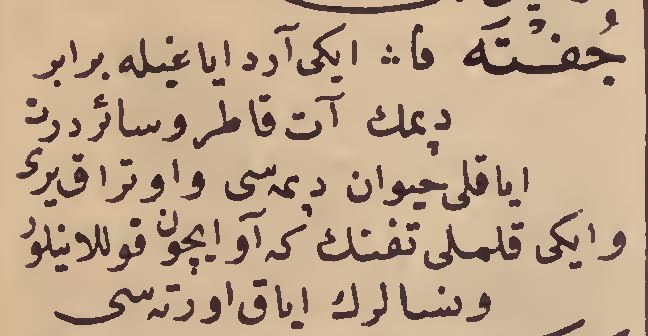 جُفْتَه فا ؞ ایکی آرد ایاغیله برابر
دپمك آت قاطر وسائر درت
ایاقلی حیوان دپمه‌سی واوتراق یری
وایکی قلمه‌لی تفنك که آو ایچون قوللانیلور
ونسالرك ایاق اورته‌سی